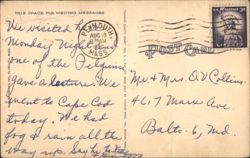 THIS SPACE FOR WRITING MESSAGES
We visited h
Monday Night
one of the Pilgrims
gave a lecture. We
went to Cape Cod
today. We had
fog & rain all the
way up. Say hi to
PLYMOUTH
AUG 18
MASS.
Post Card
Mr & Mrs O.V. Collins
4617 Marx Ave.
Balto. 6, Md.